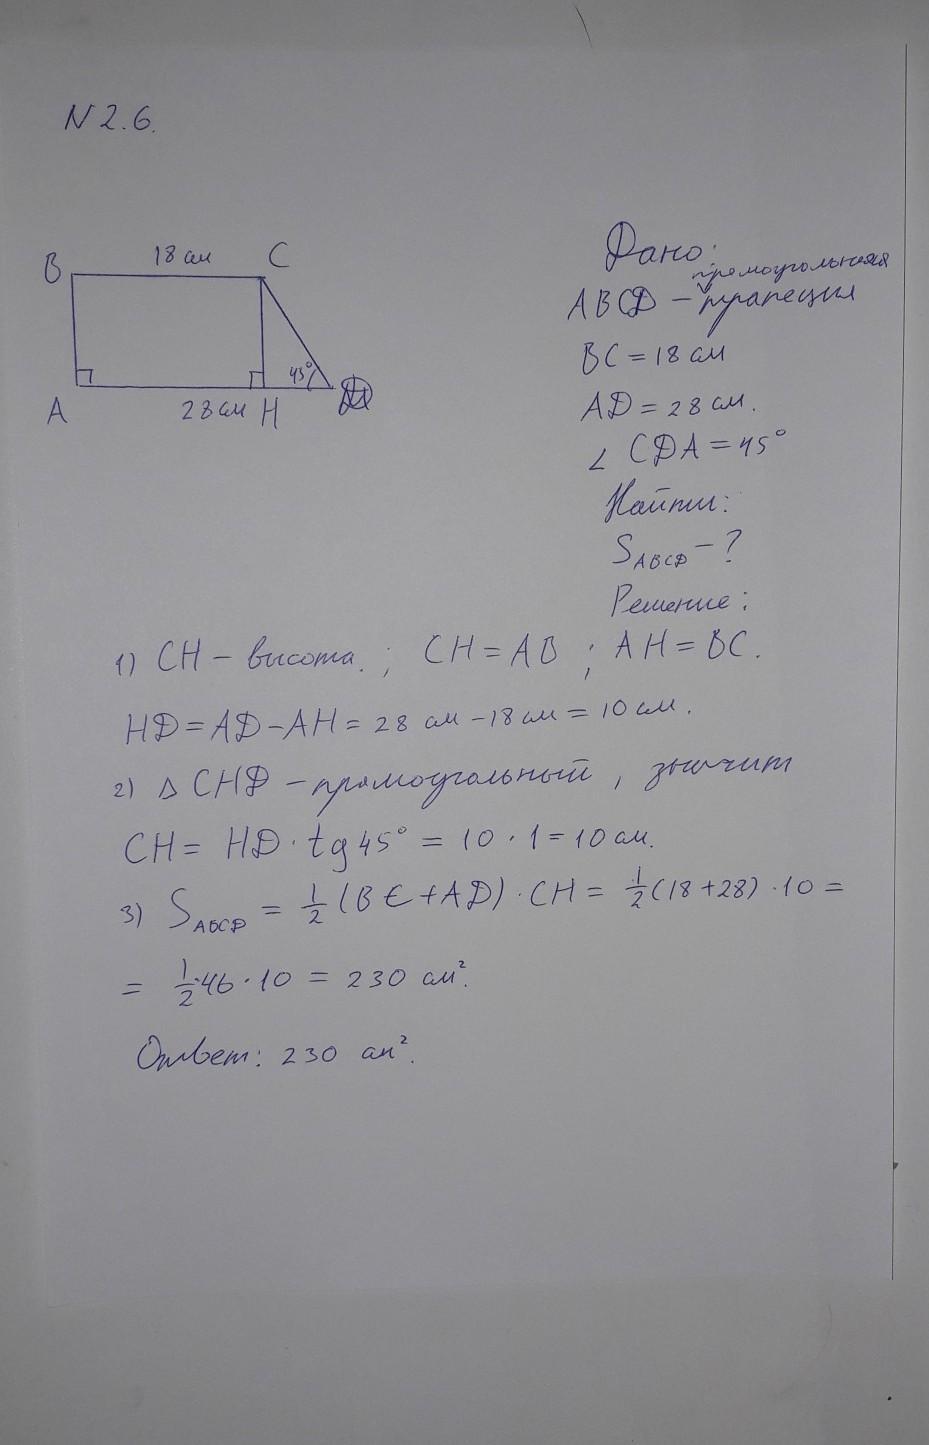 N 2.6.
B 18 см C
45°
A 28 см H
Дано:
прямоугольная
ABCD – трапеция
BC = 18 см
AD = 28 см.
∠ CDA = 45°
Найти:
S ABCD – ?
Решение:
1) CH – высота. ; CH = AB ; AH = BC.
HD = AD – AH = 28 см – 18 см = 10 см.
2) △ CHD – прямоугольный, значит
CH = HD · tg 45° = 10 · 1 = 10 см.
3) S ABCD = 1/2 (BC + AD) · CH = 1/2 (18 + 28) · 10 =
= 1/2 · 46 · 10 = 230 см².
Ответ: 230 см².